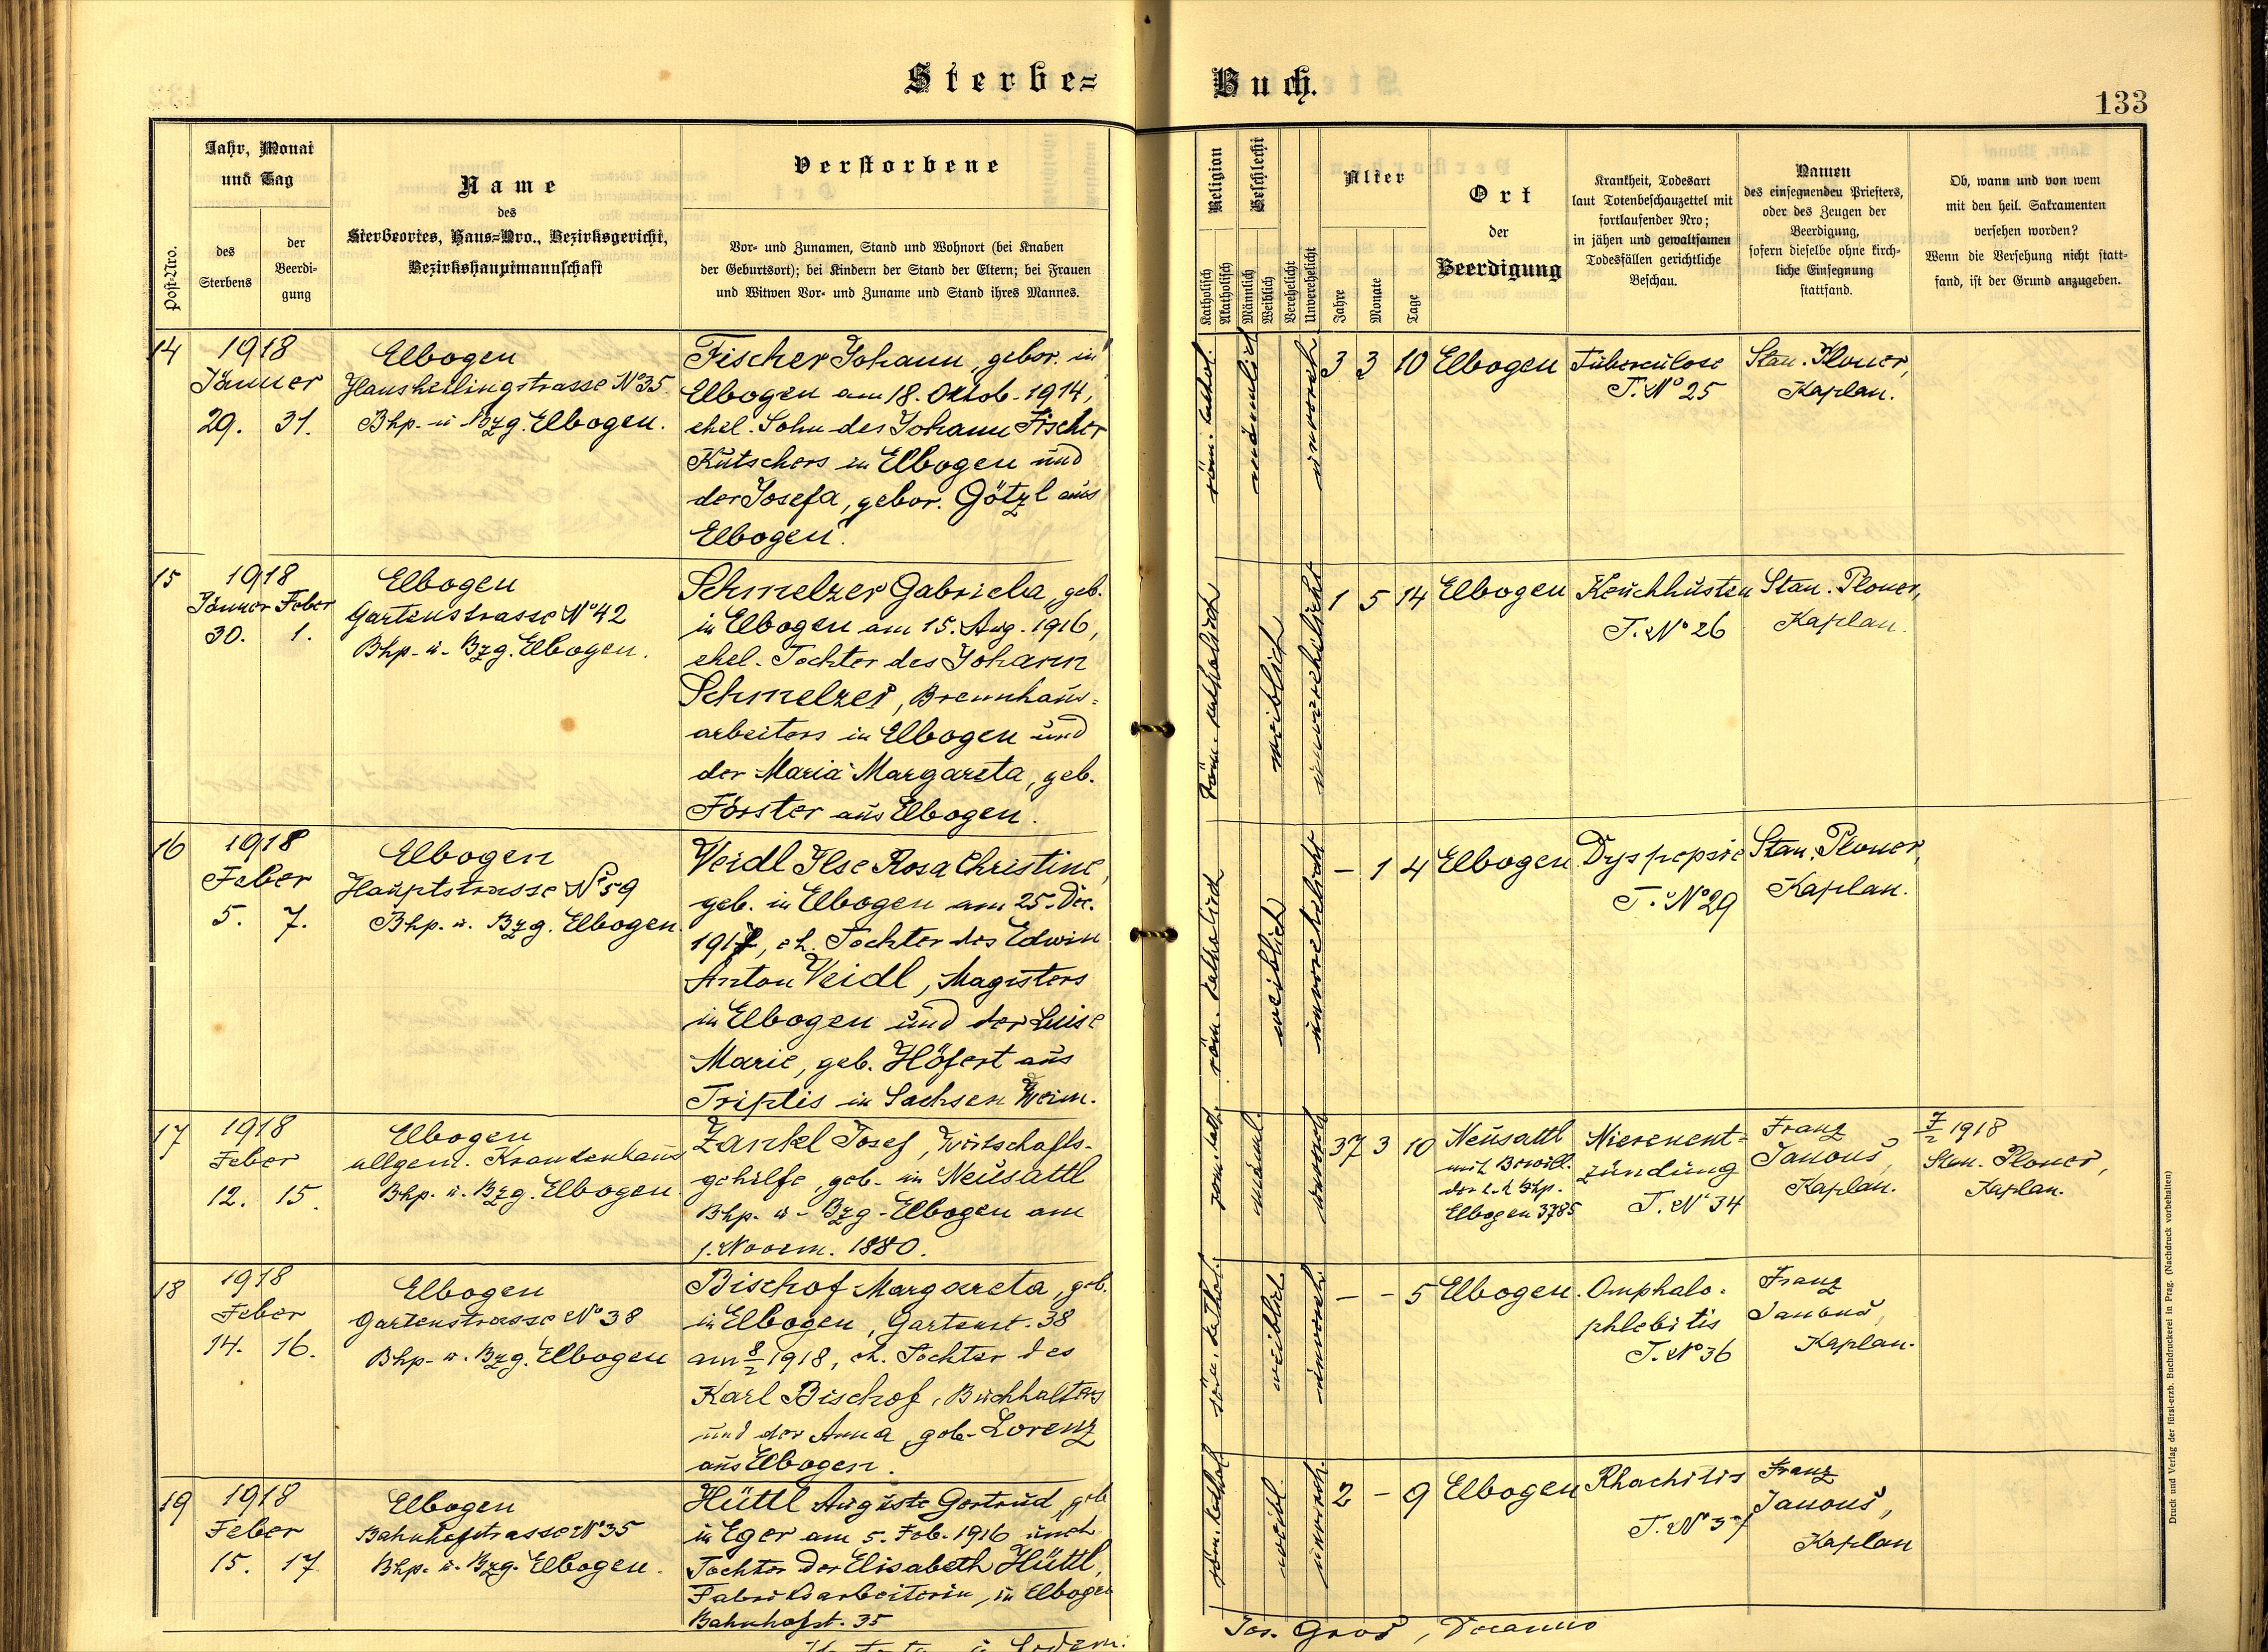 Sterbe=
Buch.
133
Post-Nro.
Jahr, Monat
und Tag
des
Sterbens
der
Beerdi-
gung
Name
des
Sterbeortes, Haus=Nro., Bezirksgericht,
Bezirkshauptmannschaft
Verstorbene
Vor- und Zunamen, Stand und Wohnort (bei Knaben
der Geburtsort); bei Kindern der Stand der Eltern; bei Frauen
und Witwen Vor- und Zuname und Stand ihres Mannes.
Religion
Katholisch
Akatholisch
Geschlecht
Männlich
Weiblich
Verehelicht
Unverehelicht
Alter
Jahre
Monate
Tage
Ort
der
Beerdigung
Krankheit, Todesart
laut Totenbeschauzettel mit
fortlaufender Nro;
in jähen und gewaltsamen
Todesfällen gerichtliche
Beschau.
Namen
des einsegnenden Priesters,
oder des Zeugen der
Beerdigung,
sofern dieselbe ohne kirch-
liche Einsegnung
stattfand.
Ob, wann und von wem
mit den heil. Sakramenten
versehen worden?
Wenn die Versehung nicht statt-
fand, ist der Grund anzugeben.
14
1918
Jänner
29. 31.
Elbogen
Hansheilingstrasse No 35.
Bhp. u. Bzg. Elbogen.
Fischer Johann, gebor. in
Elbogen am 18. Oktob. 1914,
ehel. Sohn des Johann Fischer
Kutschers in Elbogen und
der Josefa, gebor. Götzl aus
Elbogen.
röm. kathol.
männlich
unvereh.
3 3 10
Elbogen
Tuberculose
T. No 25
Stan. Ploner,
Kaplan.
15
1918
Jänner Feber
30. 1.
Elbogen
Gartenstrasse No 42
Bhp. u. Bzg. Elbogen.
Schmelzer Gabriela, geb.
in Elbogen am 15. Aug. 1916,
ehel. Tochter des Johann
Schmelzer, Brennhaus=
arbeiters in Elbogen und
der Maria Margareta, geb.
Förster aus Elbogen.
röm. katholisch
weiblich
unverehelicht
1 5 14
Elbogen
Keuchhusten
T. No 26
Stan. Ploner,
Kaplan.
16
1918
Feber
5. 7.
Elbogen
Hauptstrasse No 59
Bhp. u. Bzg. Elbogen.
Veidl Ilse Rosa Christine,
geb. in Elbogen am 25. Dec.
1917, eh. Tochter des Edwin
Anton Veidl, Magisters
in Elbogen und der Luise
Marie, geb. Höfert aus
Triptis in Sachsen Weim.
röm. katholisch
weiblich
unverehelicht
– 1 4
Elbogen
Dyspepsie
T. No 29
Stan. Ploner,
Kaplan.
17
1918
Feber
12. 15.
Elbogen
allgem. Krankenhaus
Bhp. u. Bzg. Elbogen.
Zankl Josef, Wirtschafts-
gehilfe, geb. in Neusattl
Bhp. u. Bzg. Elbogen am
1. Novem. 1880.
röm. kath.
männl.
unvereh.
37 3 10
Neusattl
mit Bewill.
der k. k. Bhp.
Elbogen 3785
Nierenent=
zündung
T. No 34
Franz
Janouš,
Kaplan.
7/2 1918
Stan. Ploner,
Kaplan.
18
1918
Feber
14. 16.
Elbogen
Gartenstrasse No 38
Bhp. u. Bzg. Elbogen
Bischof Margareta, geb.
in Elbogen, Gartenst. 38
am 8/2 1918, eh. Tochter des
Karl Bischof, Buchhalters
und der Anna, geb. Lorenz
aus Elbogen.
röm. kathol.
weiblich
unvereh.
– – 5
Elbogen.
Omphalo-
phlebitis
T. No 36
Franz
Janouš,
Kaplan.
19
1918
Feber
15. 17.
Elbogen
Bahnhofstrasse No 35
Bhp. u. Bzg. Elbogen.
Hüttl Auguste Gertrud, geb.
in Eger am 5. Feb. 1916 uneh.
Tochter der Elisabeth Hüttl,
Fabriksarbeiterin, in Elbogen
Bahnhofst. 35
röm. kathol.
weibl.
unvereh.
2 – 9
Elbogen
Rhachitis
T. No 37
Franz
Janouš,
Kaplan
Jos.
Druck und Verlag der fürst-erzb. Buchdruckerei in Prag. (Nachdruck vorbehalten)